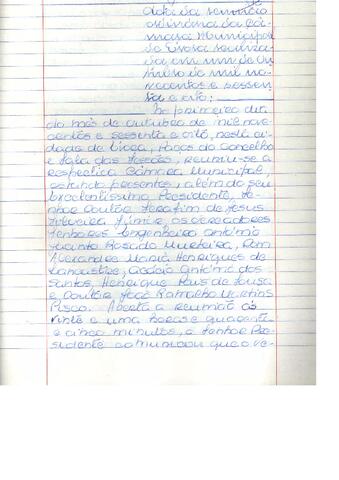 Acta da reunião
ordinária da Câ-
mara Municipal
de Évora realiza-
da em um de Ou-
tubro de mil no-
vecentos e sessen-
ta e oito:
No primeiro dia
do mês de outubro de mil nove-
centos e sessenta e oito, nesta ci-
dade de Évora, Paços do Concelho
e Sala das Sessões, reuniu-se a
respectiva Câmara Municipal,
estando presentes, além do seu
Excelentíssimo Presidente, Se-
nhor Doutor Serafim de Jesus
Silveira Júnior, os vereadores
Senhores Engenheiro António
Justo Rosado Murteira, Dom
Alexandre Maria Henriques de
Lancastre, Cláudio António dos
Santos, Henrique Pais de Sousa
e Doutor José Ramalho Martins
Pisco. Aberta a reunião às
vinte e uma horas e quarenta
e cinco minutos, o Senhor Pre-
sidente comunicou que o ve-